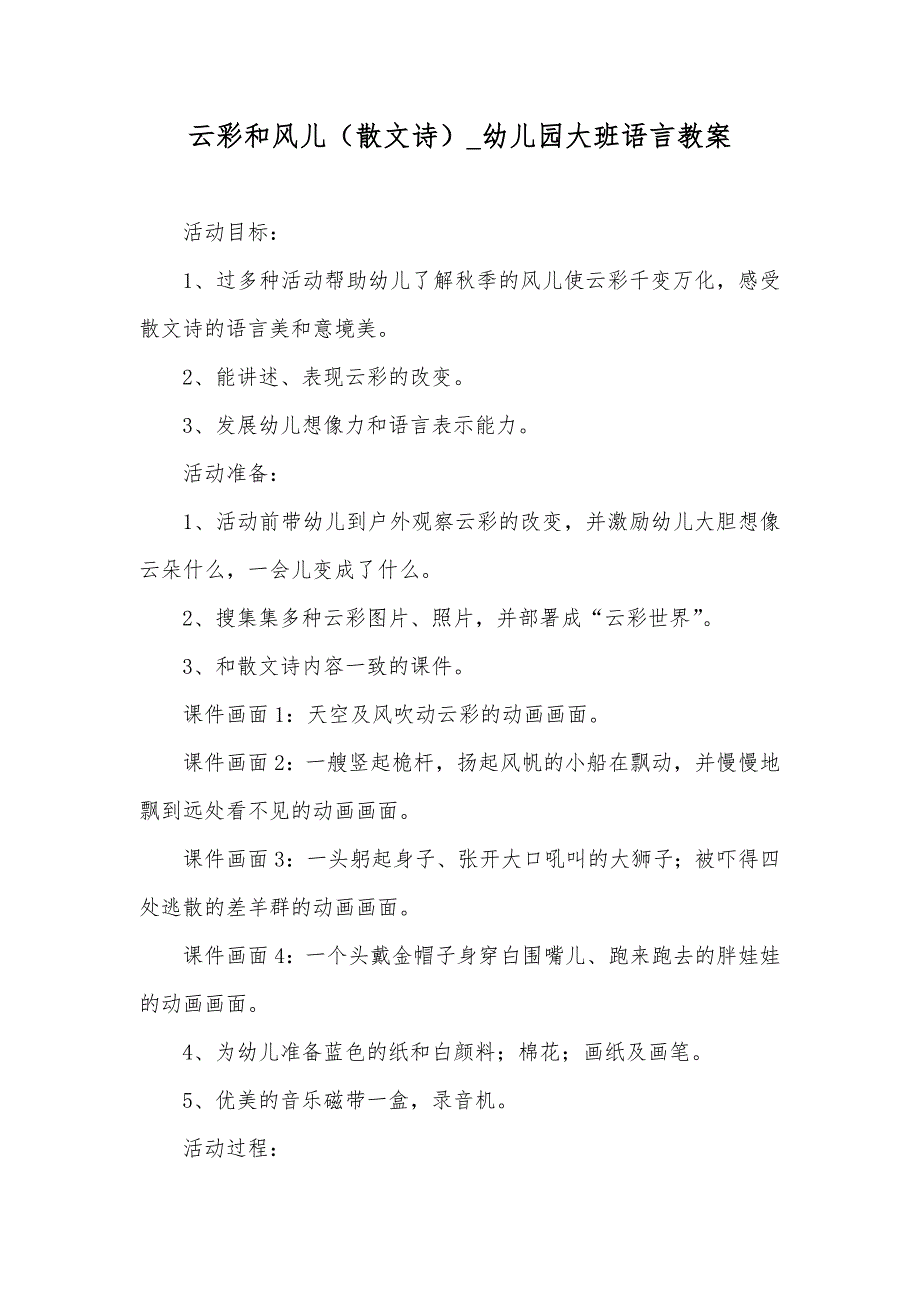 云彩和风儿（散文诗）_幼儿园大班语言教案
活动目标：
1、过多种活动帮助幼儿了解秋季的风儿使云彩千变万化，感受
散文诗的语言美和意境美。
2、能讲述、表现云彩的改变。
3、发展幼儿想像力和语言表示能力。
活动准备：
1、活动前带幼儿到户外观察云彩的改变，并激励幼儿大胆想像
云朵什么，一会儿变成了什么。
2、搜集集多种云彩图片、照片，并部署成“云彩世界”。
3、和散文诗内容一致的课件。
课件画面1：天空及风吹动云彩的动画画面。
课件画面2：一艘竖起桅杆，扬起风帆的小船在飘动，并慢慢地
飘到远处看不见的动画画面。
课件画面3：一头躬起身子、张开大口吼叫的大狮子；被吓得四
处逃散的差羊群的动画画面。
课件画面4：一个头戴金帽子身穿白围嘴儿、跑来跑去的胖娃娃
的动画画面。
4、为幼儿准备蓝色的纸和白颜料；棉花；画纸及画笔。
5、优美的音乐磁带一盒，录音机。
活动过程：